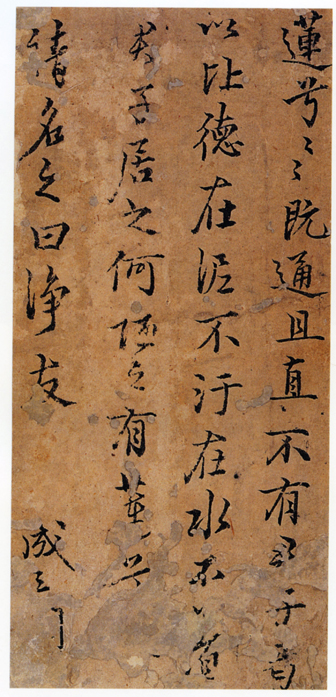 蓮兮〻〻既通且直不有君子曷
以比德在泥不汙在水不着
君子居之何陋之有蓮兮
請名之曰淨友 成三問